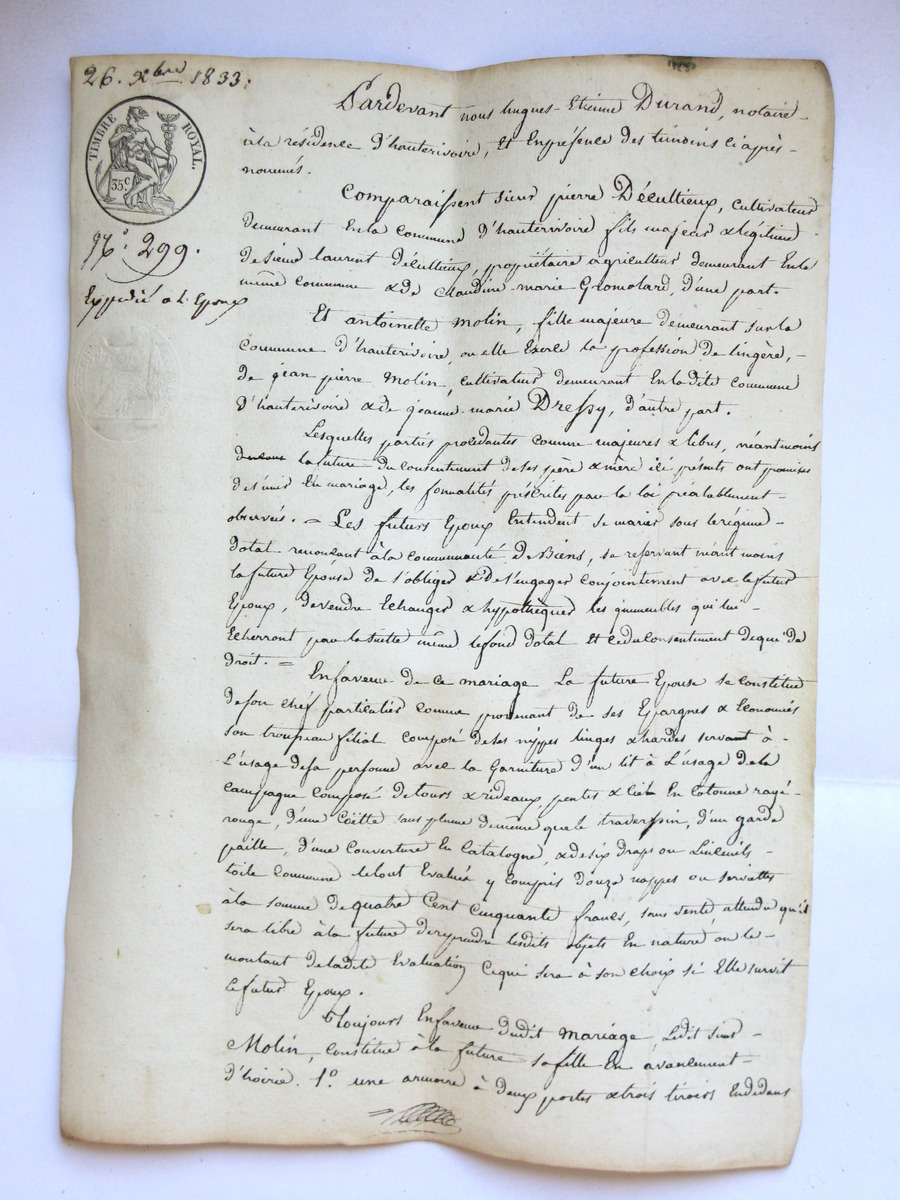 26. Xbre 1833.
TIMBRE ROYAL.
35c
No. 299.
Expédié a L. Epoux
Pardevant nous hugues-Etienne Durand, notaire
à la résidence d'hauterivoire, Et Enprésence des témoins ci après
nommés.
Comparaissent sieur pierre Décultieux, cultivateur
demeurant En la commune d'hauterivoire fils majeur & légitime
de sieur laurent décultieux, propriétaire agriculteur demeurant En la
même commune & de Claudine marie Gromolard, d'une part.
Et antoinette Molin, fille majeure demeurant sur la
commune d'hauterivoire, ou elle Exerce la profession de lingère,
de jean pierre Molin, cultivateur demeurant En ladite commune
d'hauterivoire & de jeanne-marie Dressy, d'autre part.
Lesquelles parties procédantes comme majeures & libres, néantmoins
la future du consentement de ses père & mère ici présents ont promises
de s'unir En mariage, les formalités préscrites par la loi préalablement
observées. = Les futurs Epoux Entendent se marier sous le régime
dotal renonçant à la communauté de Biens, se reservant néant moins
la future Epouse de s'obliger & de s'engager conjointement avec le futur
Epoux, de vendre Echanger & hypothèquer les immeubles qui lui
Echerront par la suitte même le fond dotal Et ce du consentement de qui de
droit. =
En faveur de ce mariage La future Epouse se constitue
de son chef particulier comme provenant de ses Epargnes & Economies
son trousseau filial composé de ses nippes linges & hardes servant à
L'usage de sa personne avec la Garniture d'un lit à L'usage de la
campagne composé de tours & rideaux, pentes & ciel En cotonne rayé
rouge, d'une coëtte sans plume de même que le traverssin, d'un garde
paille, d'une couverture En Catalogne, & de six draps ou Linceuils
toile commune letout Evalué y compris douze nappes ou serviettes
à la somme de quatre Cent Cinquante francs, sans vente, attendu qu'il
sera libre à la future de reprendre lesdits objets En nature ou le
montant de ladite Evaluation Ce qui sera à son choix si Elle survit
le futur Epoux.
Toujours En faveur dudit mariage ledit sieur
Molin, constitue à la future sa fille En avancement
d'hoirie. 1o. une armoire à deux portes & trois tiroirs En dedans